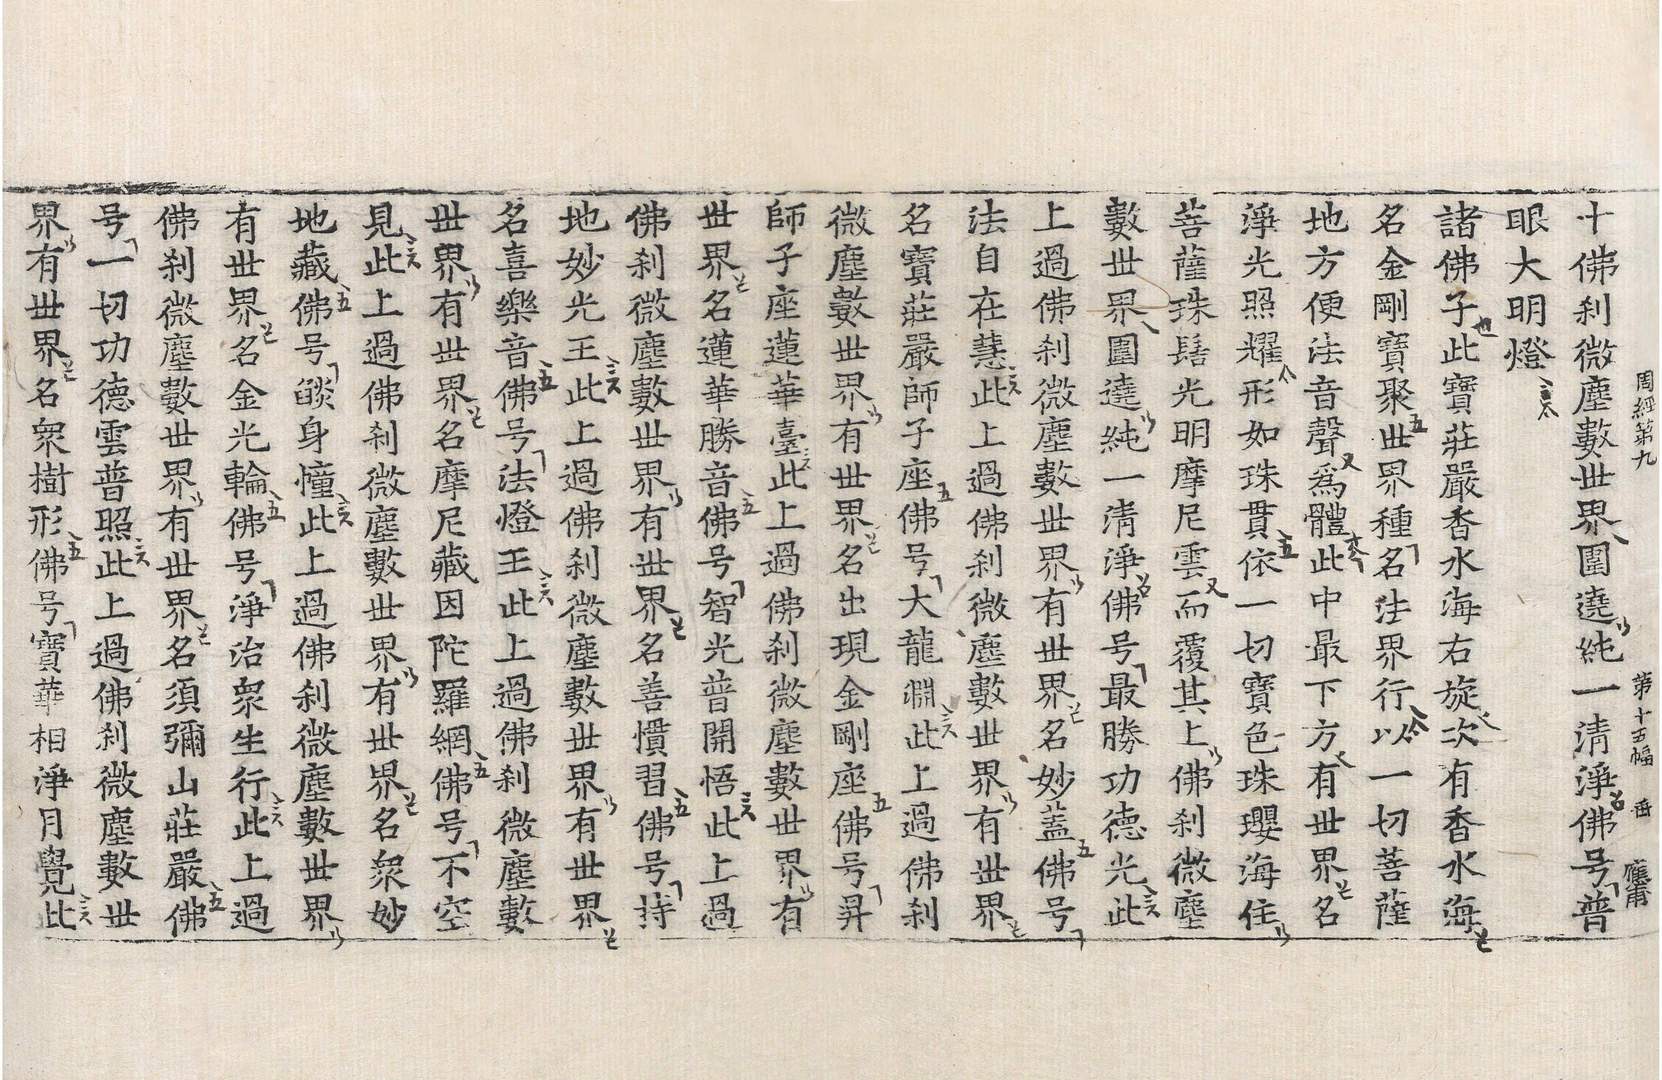 周經第九 第十五幅 岳 應甫
十佛刹微塵數世界圍遶純一清淨佛号普
眼大明燈
諸佛子此寶莊嚴香水海右旋次有香水海
名金剛寶聚世界種名法界行以一切菩薩
地方便法音聲爲體此中最下方有世界名
淨光照耀形如珠貫依一切寶色珠瓔海住
菩薩珠髻光明摩尼雲而覆其上佛刹微塵
數世界圍遶純一清淨佛号最勝功德光此
上過佛刹微塵數世界有世界名妙蓋佛号
法自在慧此上過佛刹微塵數世界有世界
名寶莊嚴師子座佛号大龍淵此上過佛刹
微塵數世界有世界名出現金剛座佛号昇
師子座蓮華臺此上過佛刹微塵數世界有
世界名蓮華勝音佛号智光普開悟此上過
佛刹微塵數世界有世界名善慣習佛号持
地妙光王此上過佛刹微塵數世界有世界
名喜樂音佛号法燈王此上過佛刹微塵數
世界有世界名摩尼藏因陀羅網佛号不空
見此上過佛刹微塵數世界有世界名衆妙
地藏佛号燄身幢此上過佛刹微塵數世界
有世界名金光輪佛号淨治衆生行此上過
佛刹微塵數世界有世界名須彌山莊嚴佛
号一切功德雲普照此上過佛刹微塵數世
界有世界名衆樹形佛号寶華相淨月覺此